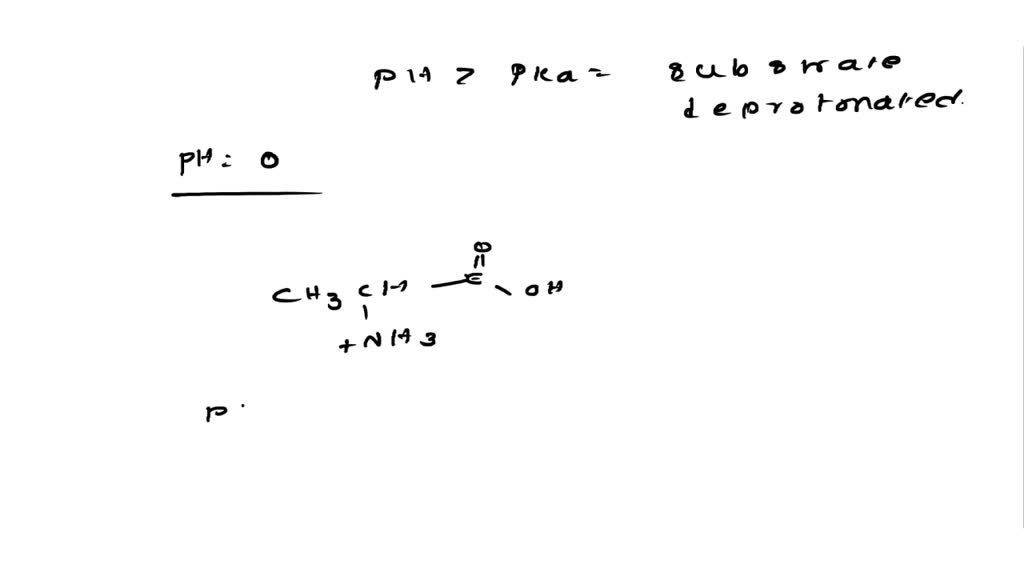 pH > pKa = substrate
deprotonated.
pH: 0
O
CH3 CH C OH
+NH3
p